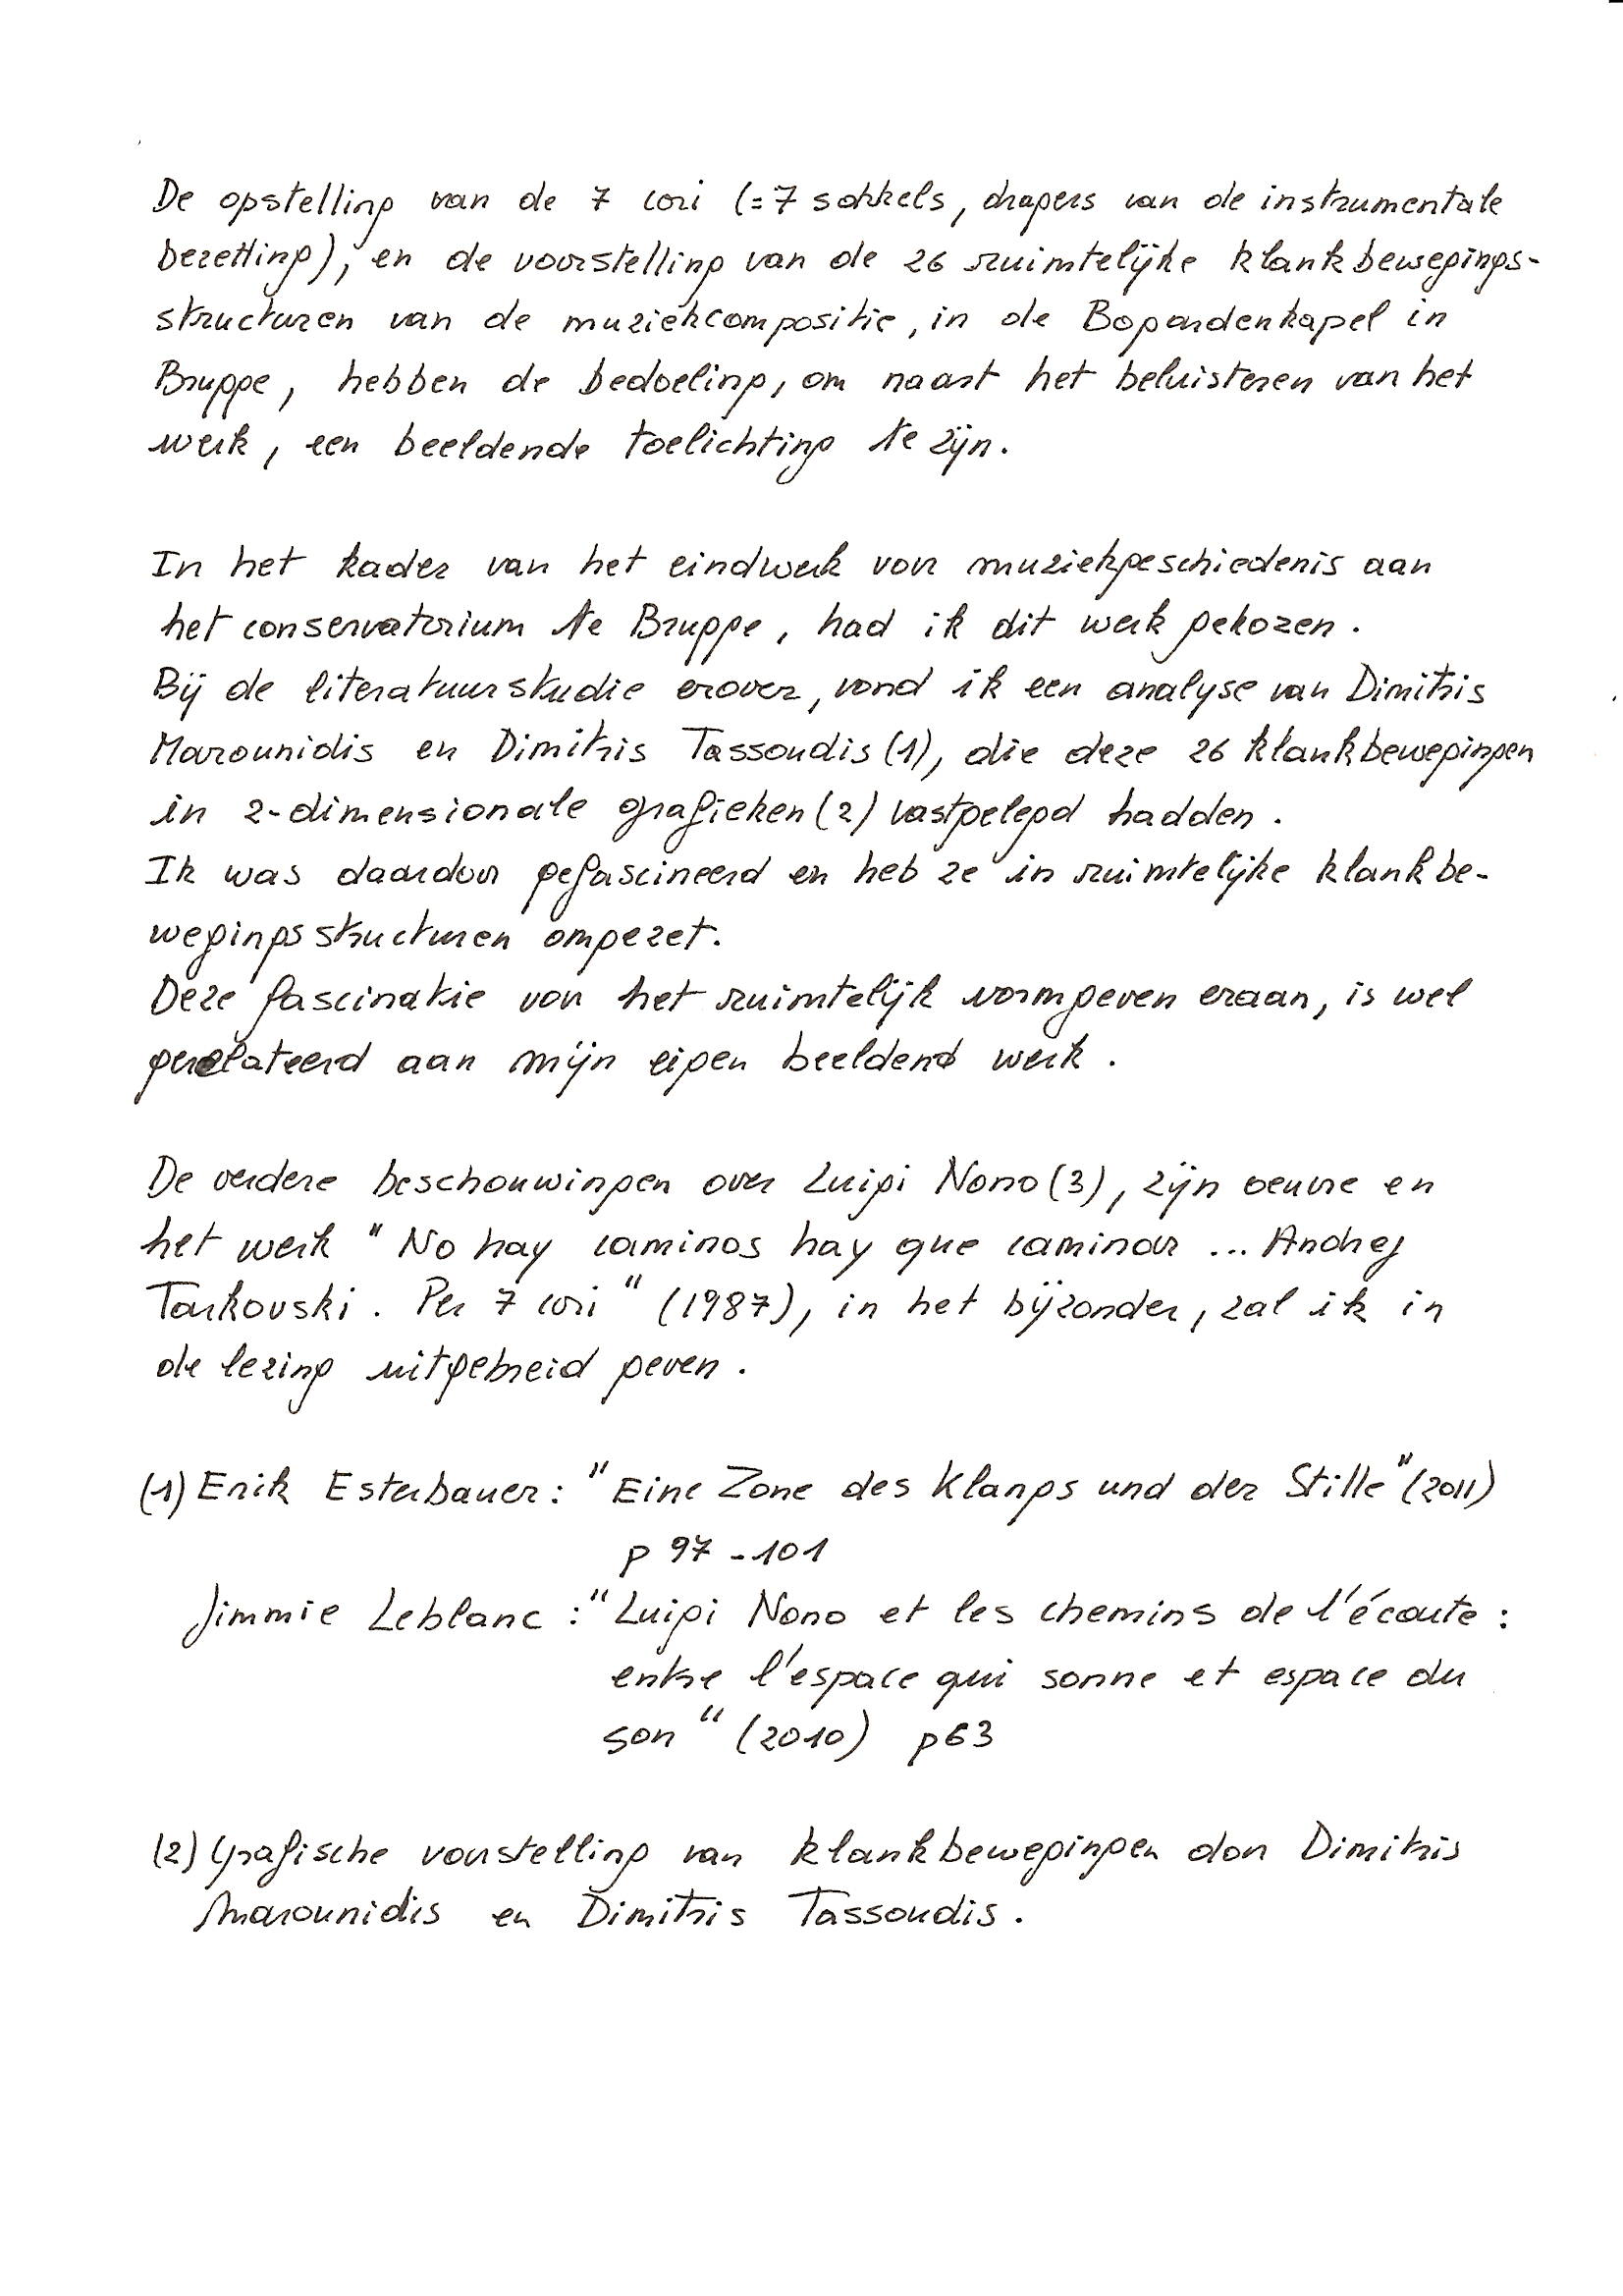 De opstelling van de 7 cori (=7 sokkels, dragers van de instrumentale
bezetting), en de voorstelling van de 26 ruimtelijke klankbewegings-
structuren van de muziekcompositie, in de Bogardenkapel in
Brugge, hebben de bedoeling, om naast het beluisteren van het
werk, een beeldende toelichting te zijn.

In het kader van het eindwerk voor muziekgeschiedenis aan
het conservatorium te Brugge, had ik dit werk gekozen.
Bij de literatuurstudie erover, vond ik een analyse van Dimitris
Marounidis en Dimitris Tassoudis (1), die deze 26 klankbewegingen
in 2-dimensionale grafieken (2) vastgelegd hadden.
Ik was daardoor gefascineerd en heb ze in ruimtelijke klankbe-
wegingsstructuren omgezet.
Deze fascinatie voor het ruimtelijk vormgeven eraan, is wel
gerelateerd aan mijn eigen beeldend werk.

De verdere beschouwingen over Luigi Nono (3), zijn oeuvre en
het werk "No hay caminos hay que caminar ... Andrej
Tarkovski. Per 7 cori" (1987), in het bijzonder, zal ik in
de lezing uitgebreid geven.

(1) Erik Esterbauer: "Eine Zone des Klangs und der Stille" (2011)
p 97 - 101
Jimmie Leblanc: "Luigi Nono et les chemins de l'écoute:
entre l'espace qui sonne et espace du
son" (2010) p63

(2) Grafische voorstelling van klankbewegingen door Dimitris
Marounidis en Dimitris Tassoudis.